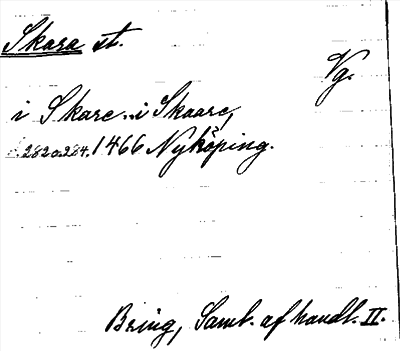 Skara st.
Vg.
i Skare. i Skaare,
s. 282 o. 284. 1466 Nyköping.
Bring, Saml. af handl. II.